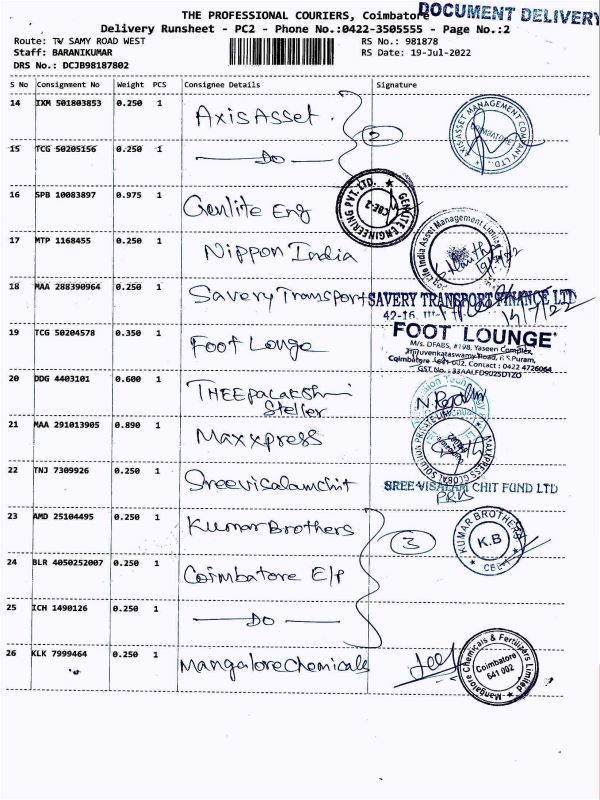 THE PROFESSIONAL COURIERS, Coimbatore
DOCUMENT DELIVERY
Delivery Runsheet - PC2 - Phone No.:0422-3505555 - Page No.:2
Route: TV SAMY ROAD WEST
RS No.: 981878
Staff: BARANIKUMAR
RS Date: 19-Jul-2022
DRS No.: DCJB98187802
S No Consignment No Weight PCS Consignee Details Signature
14 IXM 501803853 0.250 1 Axis Asset
AXIS ASSET MANAGEMENT COMPANY LTD. COIMBATORE
2
15 TCG 50205156 0.250 1 Do
16 SPB 10083897 0.975 1 Genlite Eng
GENLITE ENGINEERING PVT. LTD. CBE-2
17 MTP 1168455 0.250 1 Nippon India
Life India Asset Management Limited
18 MAA 288390964 0.250 1 Savery Transport
SAVERY TRANSPORT FINANCE LTD
42-16,
19 TCG 50204578 0.350 1 Foot Lounge
FOOT LOUNGE
M/s. DFABS, #198, Yaseen Complex,
Thiruvenkataswamy Road, R.S.Puram,
Coimbatore - 641 002. Contact : 0422 4726064
GST No. : 33AALFD9025D1ZO
20 DDG 4403101 0.600 1 THEEPALAKShmi
Steller
21 MAA 291013905 0.890 1 Maxxpress
MAXXPRESS GLOBAL SOLUTION PRIVATE LIMITED
22 TNJ 7309926 0.250 1 Sreevisalamchit
SREE VISALAM CHIT FUND LTD
23 AMD 25104495 0.250 1 Kumar Brothers
KUMAR BROTHERS K.B CBE-1
3
24 BLR 4050252007 0.250 1 Coimbatore E/P
25 ICH 1490126 0.250 1 Do
26 KLK 7999464 0.250 1 Mangalore Chemicals
Mangalore Chemicals & Fertilizers Limited
Coimbatore
641 002